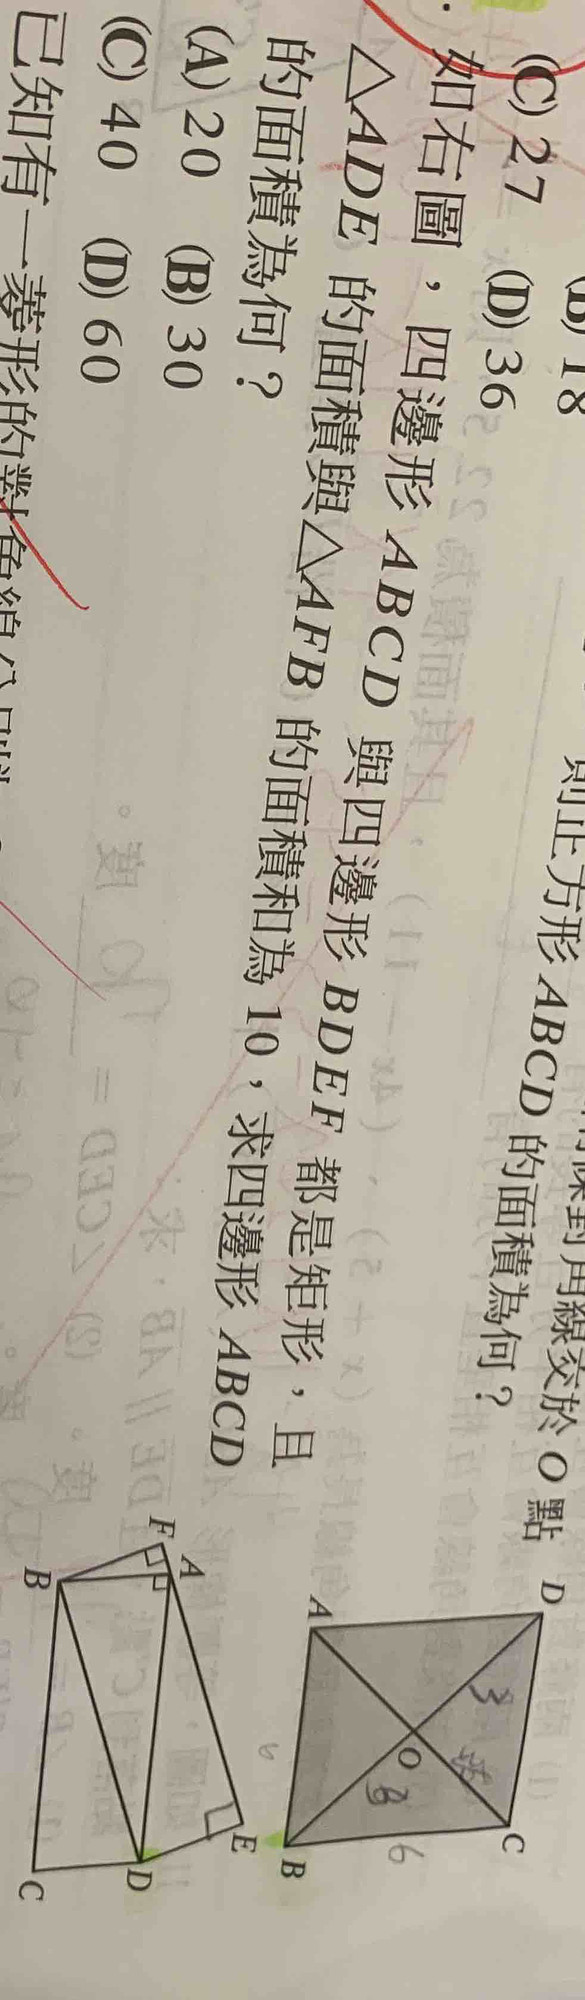 (B) 18
(C) 27 (D) 36
則正方形 ABCD 的面積為何？
對角線交於 O 點
如右圖，四邊形 ABCD 與四邊形 BDEF 都是矩形，且
△ADE 的面積與△AFB 的面積和為 10，求四邊形 ABCD
的面積為何？
(A) 20 (B) 30
(C) 40 (D) 60
已知有一菱形的對角線分別
D
A
3
O
C
6
B
F
A
B
E
D
C